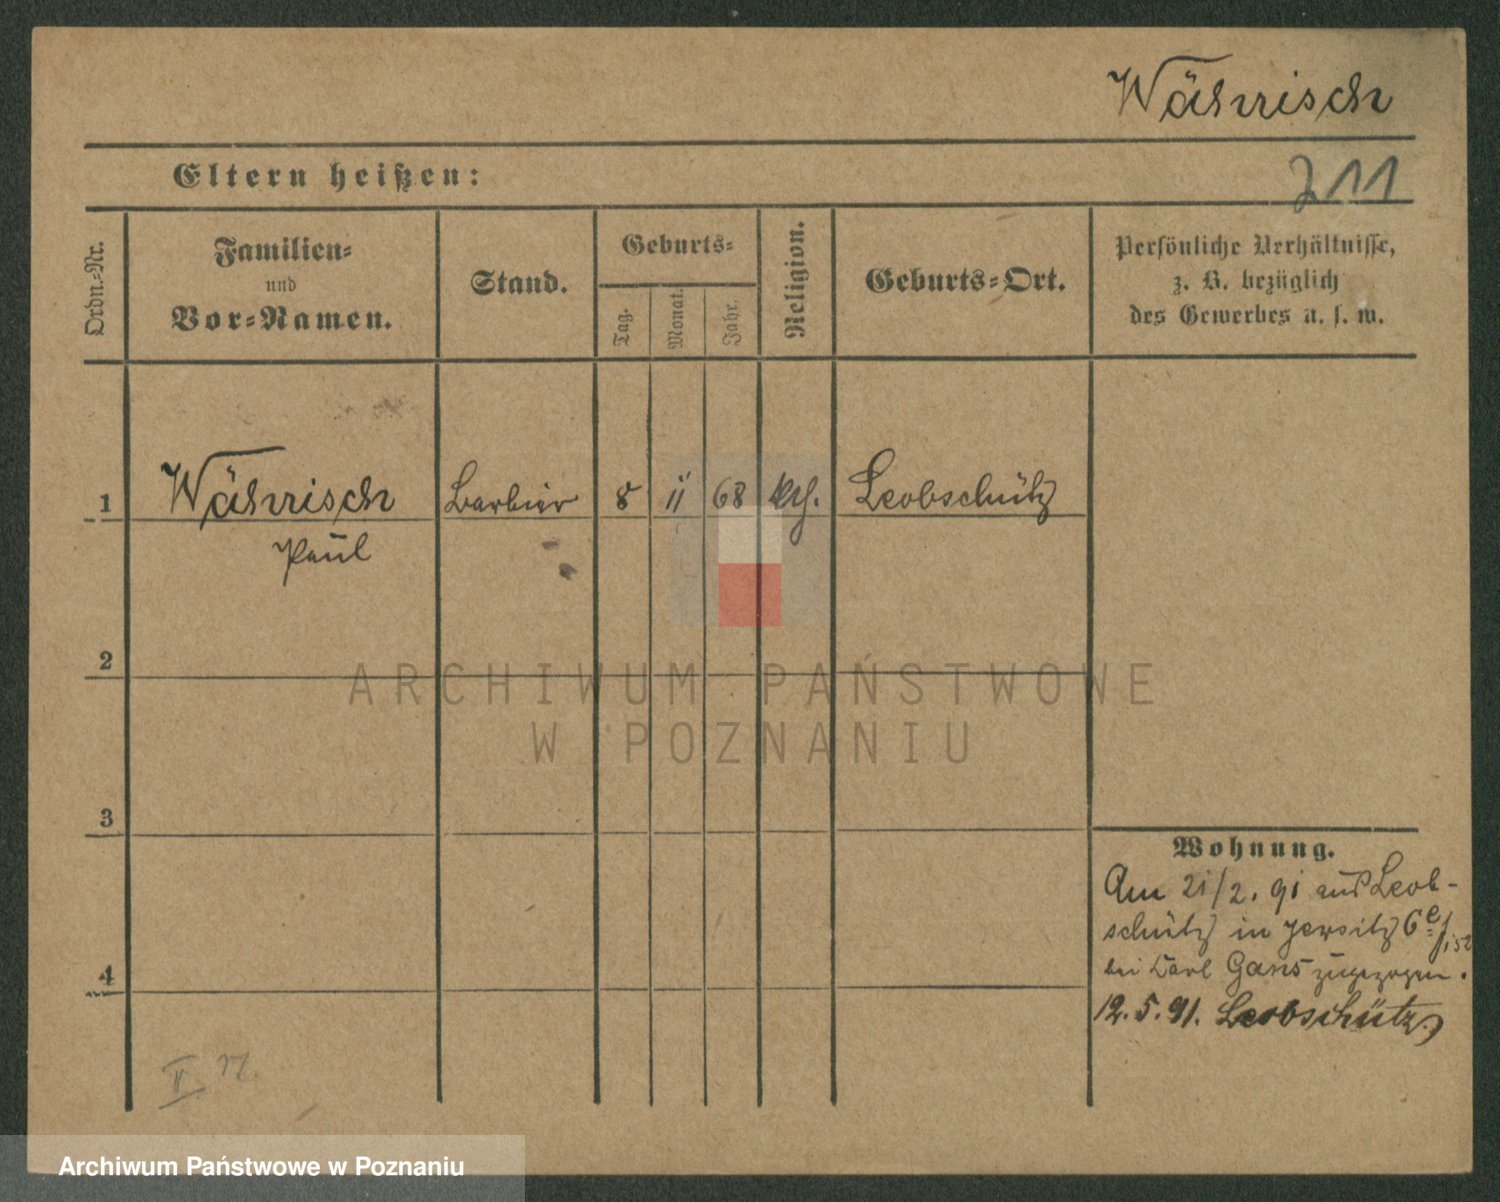 Währisch
Eltern heißen:
211
Ordn.-Nr.
Familien-
und
Vor-Namen.
Stand.
Geburts-
Tag.
Monat.
Jahr.
Religion.
Geburts-Ort.
Persönliche Verhältnisse,
z. B. bezüglich
des Gewerbes u. s. w.
1 Währisch Barbier 8 11 68 kth. Leobschütz
Paul
2
ARCHIWUM PAŃSTWOWE
W POZNANIU
3
Wohnung.
Am 21/2. 91 aus Leob-
schütz in Jersitz 6
4
bei Carl Gans zugezogen.
12.5.91. Leobschütz
II
Archiwum Państwowe w Poznaniu